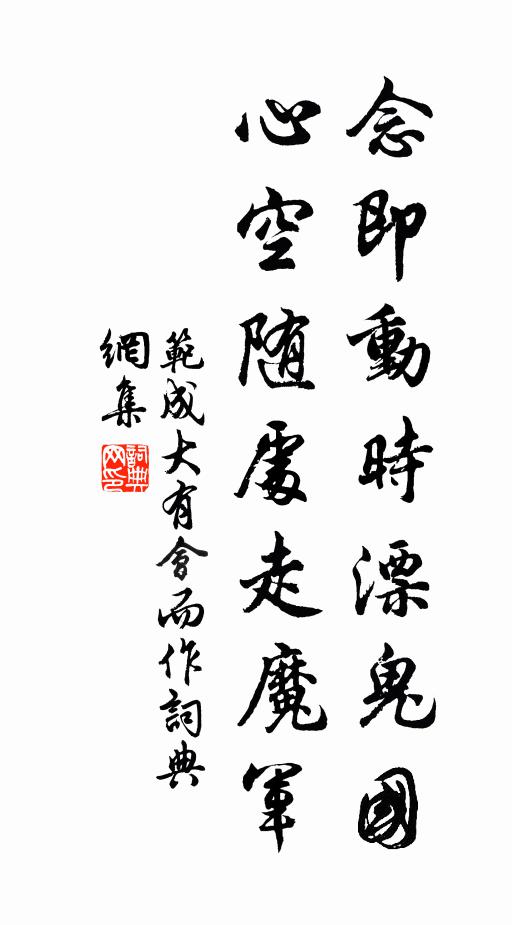 念即動時漂鬼國
心空随處走魔軍
範成大有會而作詞典
網集
詞典
网印